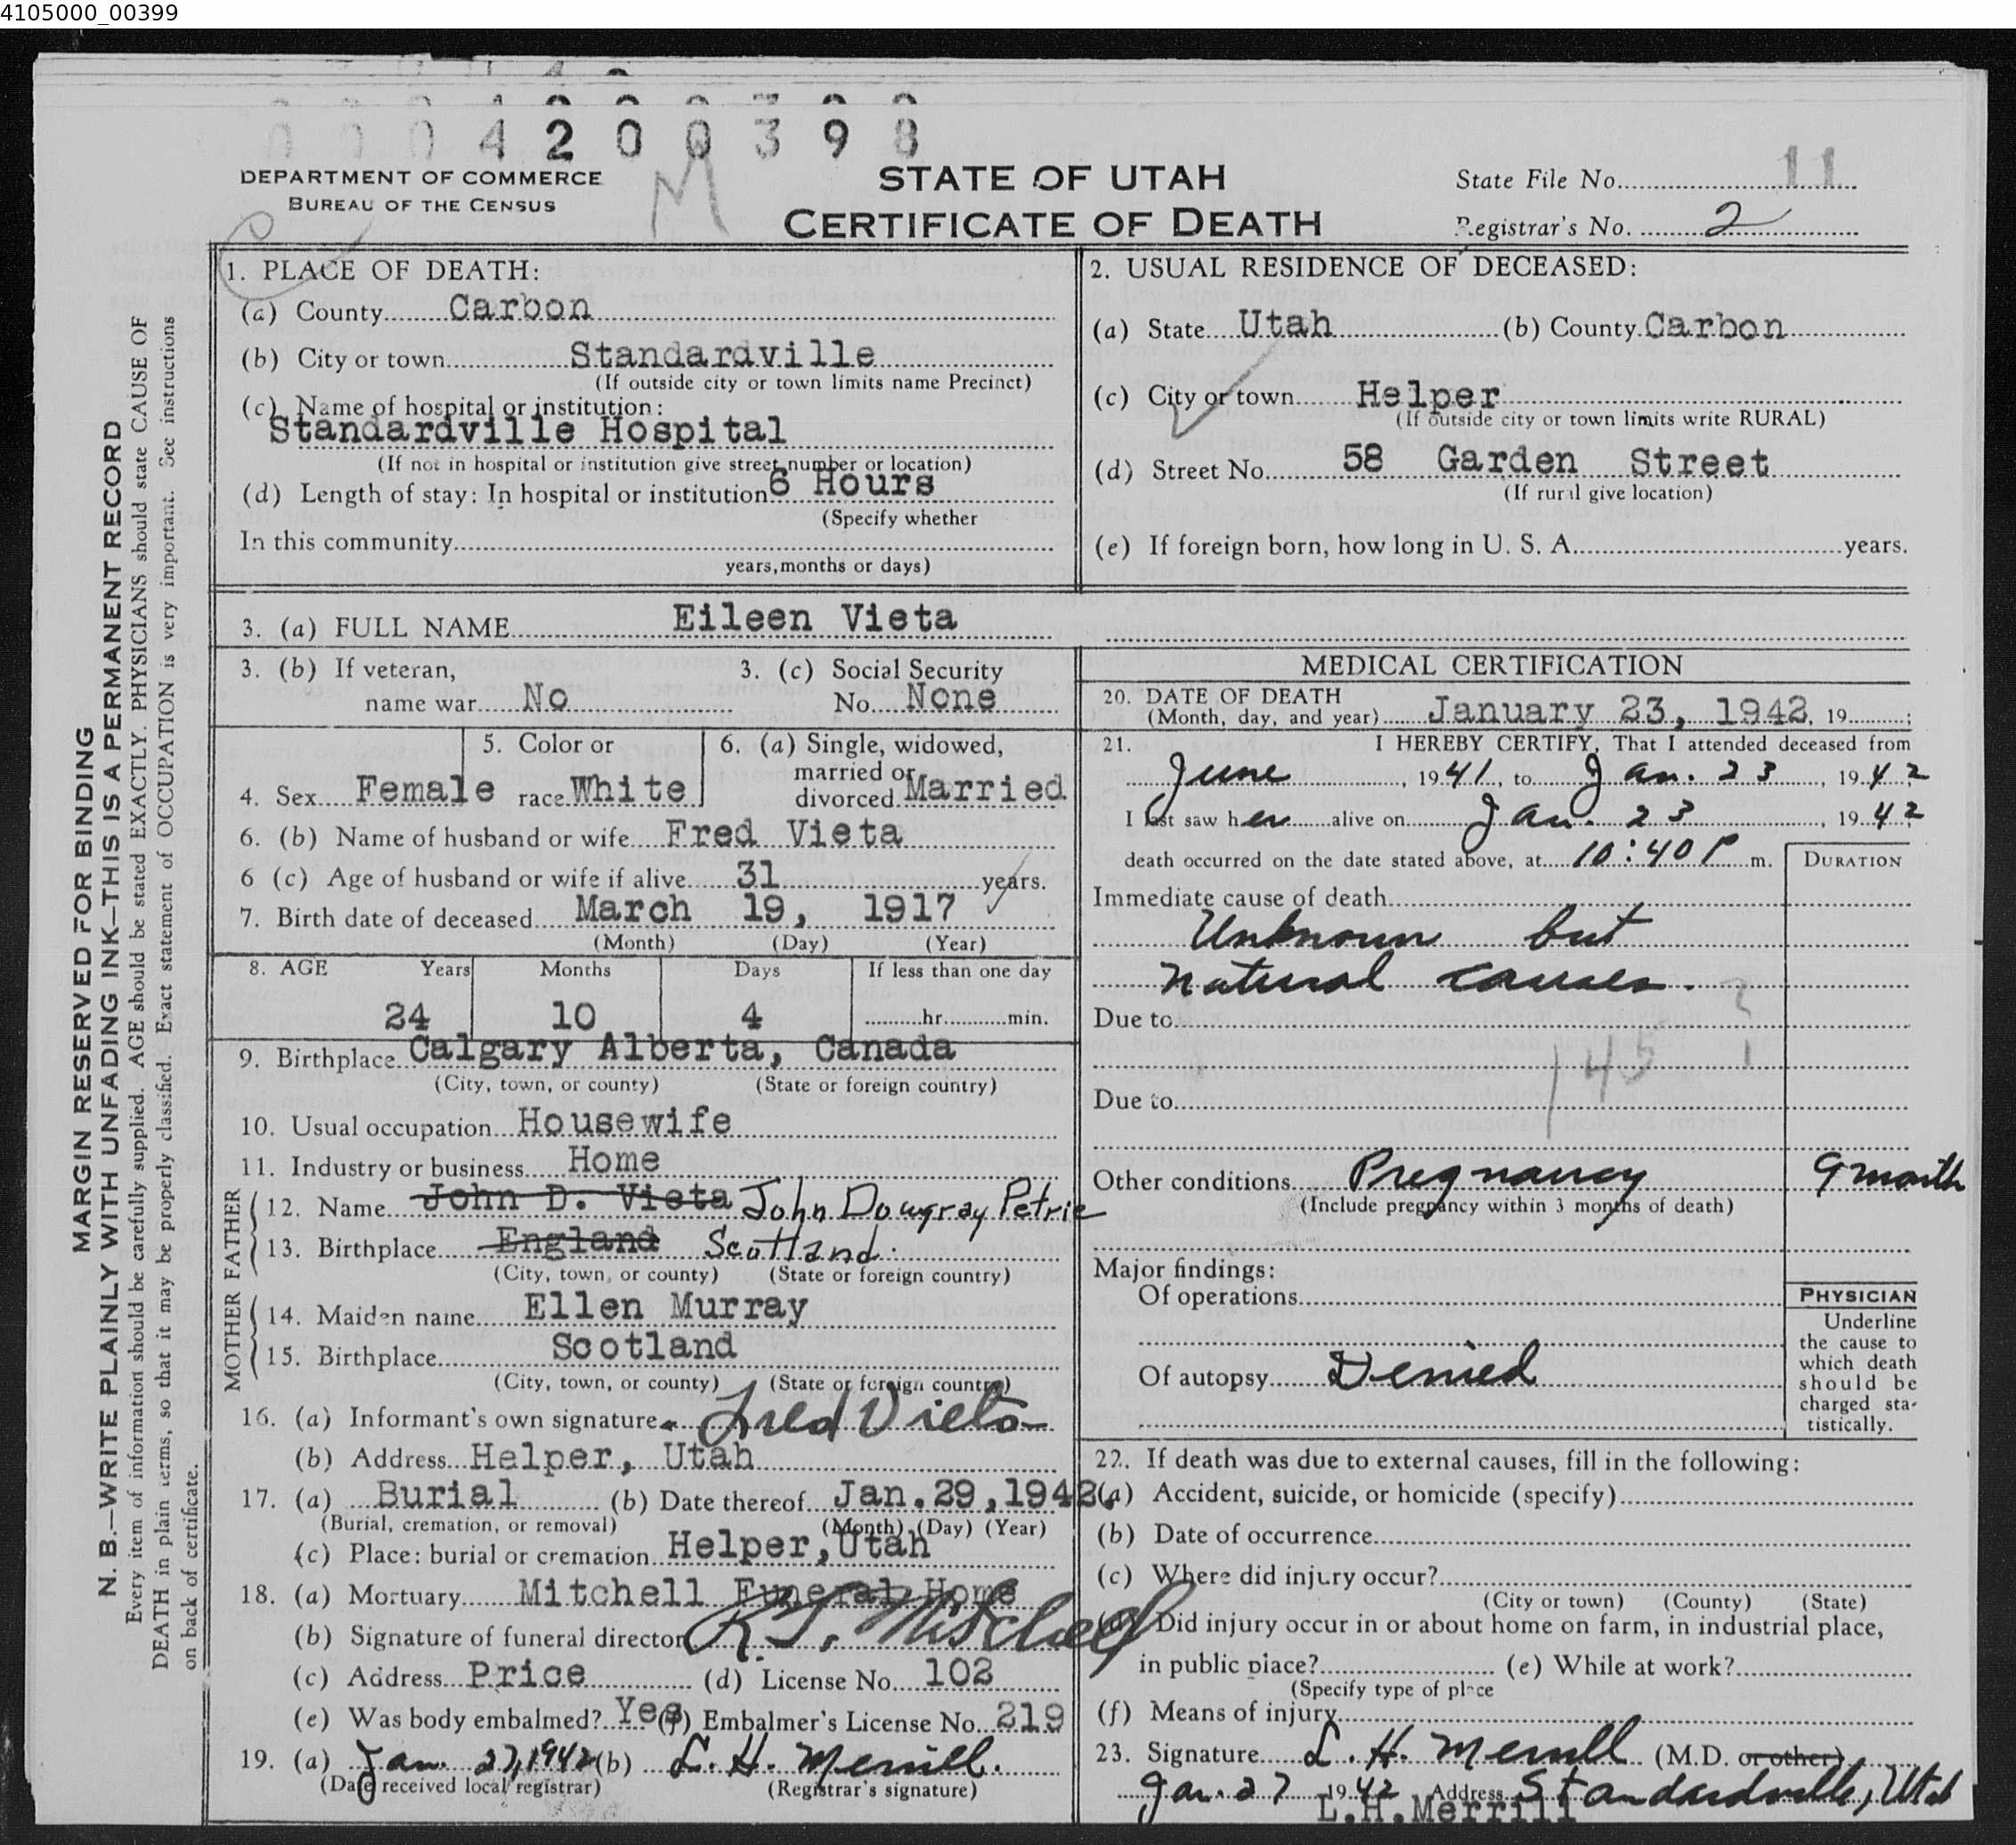 4105000_00399
0004200398
DEPARTMENT OF COMMERCE
BUREAU OF THE CENSUS
M
STATE OF UTAH
CERTIFICATE OF DEATH
State File No. 11
Registrar's No. 2
MARGIN RESERVED FOR BINDING
N. B.—WRITE PLAINLY WITH UNFADING INK—THIS IS A PERMANENT RECORD
Every item of information should be carefully supplied. AGE should be stated EXACTLY. PHYSICIANS should state CAUSE OF
DEATH in plain terms, so that it may be properly classified. Exact statement of OCCUPATION is very important. See instructions
on back of certificate.
1. PLACE OF DEATH:
(a) County Carbon
(b) City or town Standardville
(If outside city or town limits name Precinct)
(c) Name of hospital or institution:
Standardville Hospital
(If not in hospital or institution give street number or location)
(d) Length of stay: In hospital or institution 6 Hours
(Specify whether
In this community
years, months or days)
2. USUAL RESIDENCE OF DECEASED:
(a) State Utah (b) County Carbon
(c) City or town Helper
(If outside city or town limits write RURAL)
(d) Street No. 58 Garden Street
(If rural give location)
(e) If foreign born, how long in U. S. A. years.
3. (a) FULL NAME Eileen Vieta
3. (b) If veteran, 3. (c) Social Security
name war No No. None
4. Sex Female 5. Color or race White 6. (a) Single, widowed, married or divorced Married
6. (b) Name of husband or wife Fred Vieta
6 (c) Age of husband or wife if alive 31 years.
7. Birth date of deceased March 19, 1917
(Month) (Day) (Year)
8. AGE Years Months Days If less than one day
24 10 4 hr. min.
9. Birthplace Calgary Alberta, Canada
(City, town, or county) (State or foreign country)
10. Usual occupation Housewife
11. Industry or business Home
FATHER
12. Name John D. Vieta John Dowgray Petrie
13. Birthplace England Scotland.
(City, town, or county) (State or foreign country)
MOTHER
14. Maiden name Ellen Murray
15. Birthplace Scotland
(City, town, or county) (State or foreign country)
16. (a) Informant's own signature Fred Vieta
(b) Address Helper, Utah
17. (a) Burial (b) Date thereof Jan.29,1942.
(Burial, cremation, or removal) (Month) (Day) (Year)
(c) Place: burial or cremation Helper,Utah
18. (a) Mortuary Mitchell Funeral Home
(b) Signature of funeral director R. J. Mitchell
(c) Address Price (d) License No. 102
(e) Was body embalmed? Yes (f) Embalmer's License No. 219
19. (a) Jan. 27, 1942 (b) L. H. Merrill.
(Date received local registrar) (Registrar's signature)
MEDICAL CERTIFICATION
20. DATE OF DEATH
(Month, day, and year) January 23, 1942, 19 ;
21. I HEREBY CERTIFY, That I attended deceased from
June, 1941, to Jan. 23, 1942
I last saw her alive on Jan. 23, 1942
death occurred on the date stated above, at 10:40 P m.
DURATION
Immediate cause of death
Unknown but
natural causes.
Due to
145
Due to
Other conditions Pregnancy 9 month
(Include pregnancy within 3 months of death)
Major findings:
Of operations
Of autopsy Denied
PHYSICIAN
Underline
the cause to
which death
should be
charged sta-
tistically.
22. If death was due to external causes, fill in the following:
(a) Accident, suicide, or homicide (specify)
(b) Date of occurrence
(c) Where did injury occur?
(City or town) (County) (State)
(d) Did injury occur in or about home on farm, in industrial place,
in public place? (e) While at work?
(Specify type of place
(f) Means of injury
23. Signature L. H. Merrill (M.D. or other)
Jan. 27 1942 Address Standardville, Utah
L.H.Merrill